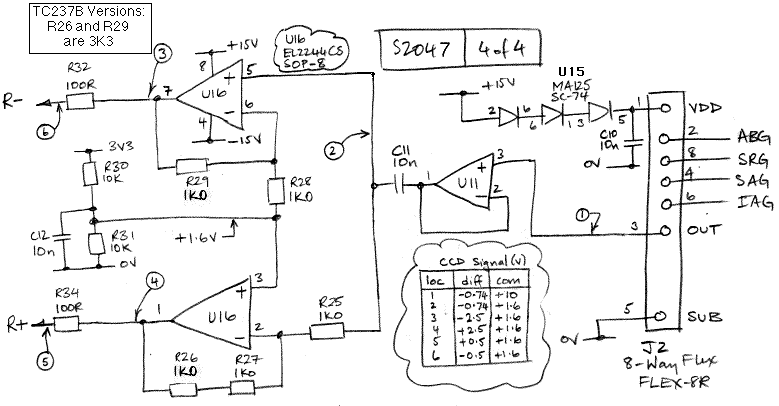 TC237B Versions:
R26 and R29
are 3K3
U16
EL2244CS
SOP-8
S2047
4 of 4
+15V
8
5
U16
6
7
4
-15V
3
R32
100R
R-
6
3V3
R30
10K
R29
1K0
R28
1K0
2
C11
10n
1
U11
3
2
+15V
U15
MA125
SC-74
2
6
6
1
3
5
C10
10n
0V
1
VDD
2
ABG
8
SRG
4
SAG
6
IAG
3
OUT
1
5
SUB
0V
J2
8-Way Flex
FLEX-8R
C12
10n
R31
10K
0V
+1.6V
R34
100R
R+
5
4
1
U16
3
2
R25
1K0
R26
1K0
R27
1K0
CCD Signal (V)
loc diff com
1 -0.74 +10
2 -0.74 +1.6
3 -2.5 +1.6
4 +2.5 +1.6
5 +0.5 +1.6
6 -0.5 +1.6